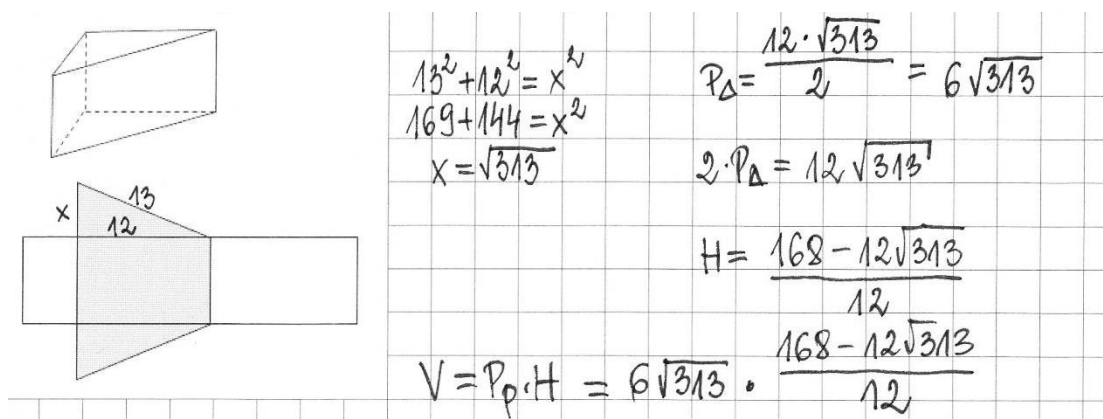 x
13
12
13² + 12² = x²
169 + 144 = x²
x = √313
P_Δ = \frac{12 · √313}{2} = 6√313
2 · P_Δ = 12√313
H = \frac{168 − 12√313}{12}
V = P_p · H = 6√313 · \frac{168 − 12√313}{12}